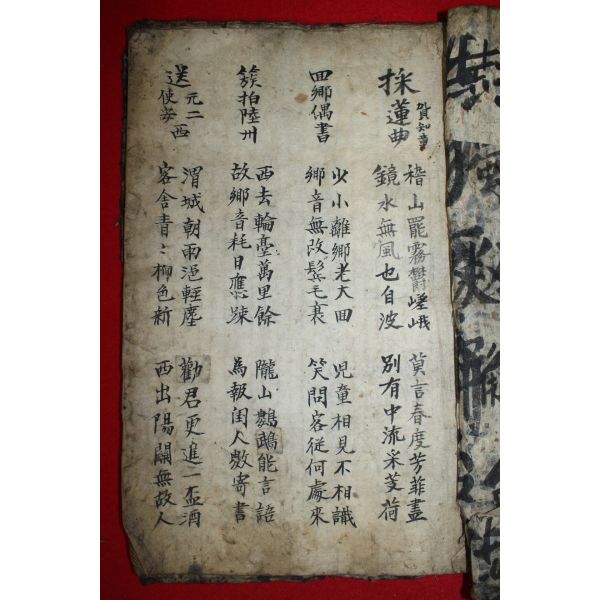 採蓮曲 賀知章
稽山罷霧鬱嵯峨
鏡水無風也自波
莫言春度芳菲盡
別有中流采芰荷
回鄉偶書
少小離鄉老大回
鄉音無改鬢毛衰
兒童相見不相識
笑問客従何處來
簇拍陸州
西去輪臺萬里餘
故鄉音耗日應踈
隴山鸚鵡能言語
為報閨人數寄書
送元二使安西
渭城朝雨浥輕塵
客舍青〻柳色新
勸君更進一盃酒
西出陽關無故人